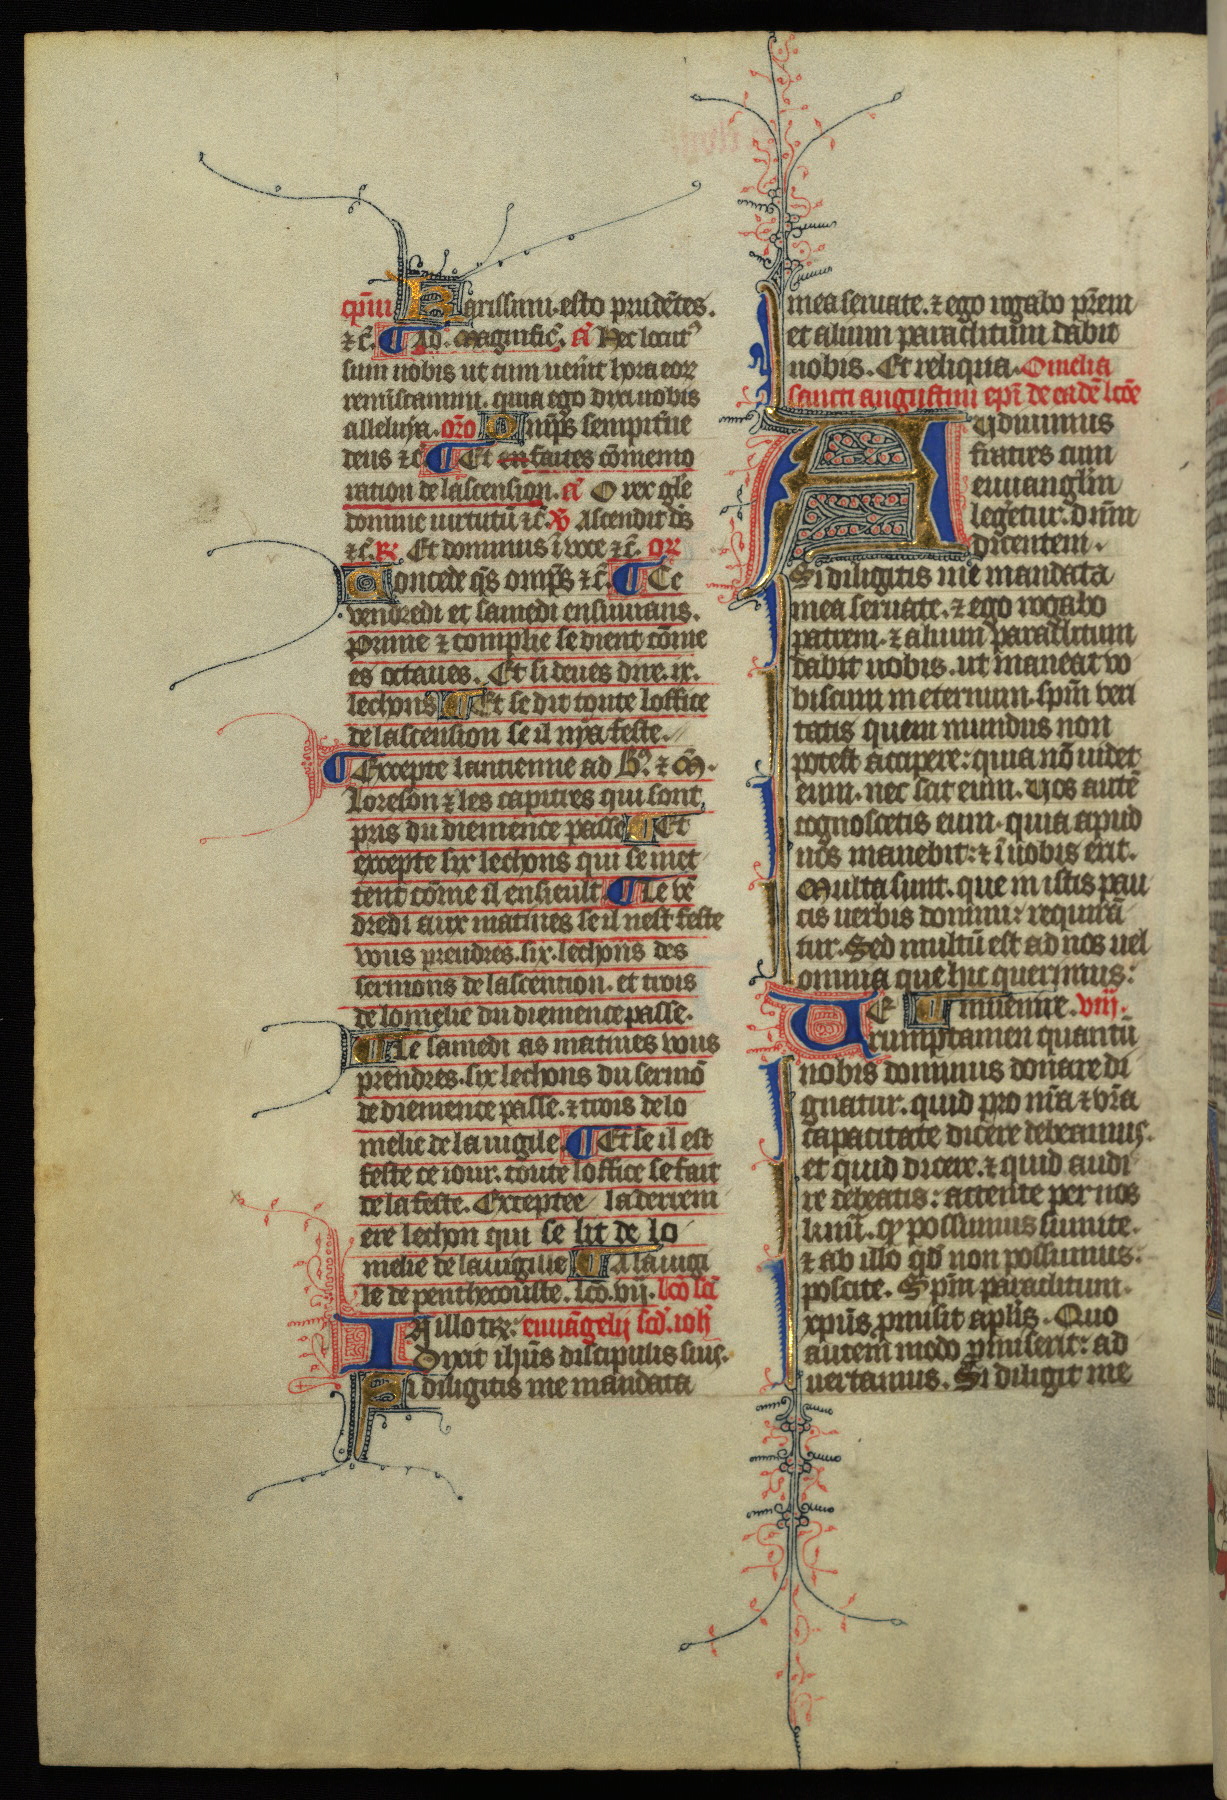 cp̄m Karissimi. esto prudētes.
⁊ c̄. ¶ Ad magnific̄. a᷑ Hec locut᷒
sum uobis ut cum uen̄it hora eor᷑
reminiscamini. quia ego dixi uobis
alleluya. or̄o Om̄ps sempit̄ne
deus ⁊c̄ ¶ Et en faites cōmemo
ration de lascension. a᷑ O rex gl̄e
domine uirtutū ⁊c̄. V̄ Ascendit d̄s
⁊c̄. R̄. Et dominus ī voce ⁊ c̄. or᷑
Concede q̄s om̄ps ⁊ c̄. ¶ Ce
vendredi et samedi ensiuuans.
Prime ⁊ complie se dient cōme
es octaues. Et si deues dire. ix.
lechons ¶ Et se dit toute loffice
de lascension se il nya feste.
¶ Excepte lantienne ad B᷒. ⁊ M̄.
Loreson ⁊ les capitres qui sont
pris du diemence passe ¶ Et
excepte six lechons qui se met
tent cōme il ensieult ¶ Le vē
dredi aux matines se il nest feste
vous prendres. six. lechons des
sermons de lascention. et trois
de lomelie du diemence passe.
¶ Le samedi as matines vous
prendres. six lechons du sermō
de diemence passe. ⁊ trois de lo
melie de la uigile ¶ Et se il est
feste ce iour. toute loffice se fait
de la feste. Exceptee la derreni
ere lechon qui se lit de lo
melie de la uigilie ¶ A la uigi
le de penthecouste. lc̄o. vij. lc̄o sc̄i
In illo tp̄r: euuāgelij sc̄d. ioh̄
Dixit ih̄us discipulis suis.
Si diligitis me mandata
mea seruate. ⁊ ego rogabo pr̄em
et alium paraclitum dabit
uobis. Et reliqua. Omelia
sancti augustini ep̄i de eadē lc̄oe
Audiuimus
fratres cum
euuanglm̄
legetur. dn̄m
dicentem.
Si diligitis me mandata
mea seruate. ⁊ ego rogabo
patrem. ⁊ alium paraclitum
dabit uobis. ut maneat vo
biscum in eternum. sp̄m veri
tatis quem mundus non
potest accipere: quia nō uidet
eum. nec scit eum. Uos autē
cognoscetis eum. quia apud
uos manebit: ⁊ ī uobis erit.
Multa sunt. que in istis pau
cis uerbis domini: requirā
tur. Sed multū est ad nos uel
omnia que hic querimus:
UE ¶ Inuenire. viij.
rumptamen quantū
nobis dominus donare di
gnatur. quid pro n̄ra ⁊ vr̄a
capacitate dicere debeamus.
et quid dicere. ⁊ quid audi
re debeatis: attente per nos
kr̄mi. qꝫ possumus sumite.
⁊ ab illo qd̄ non possumus:
poscite. Sp̄m paraclitum.
xp̄us p̄misit apl̄is. Quo
autem modo p̄miserit: ad
uertamus. Si diligit me